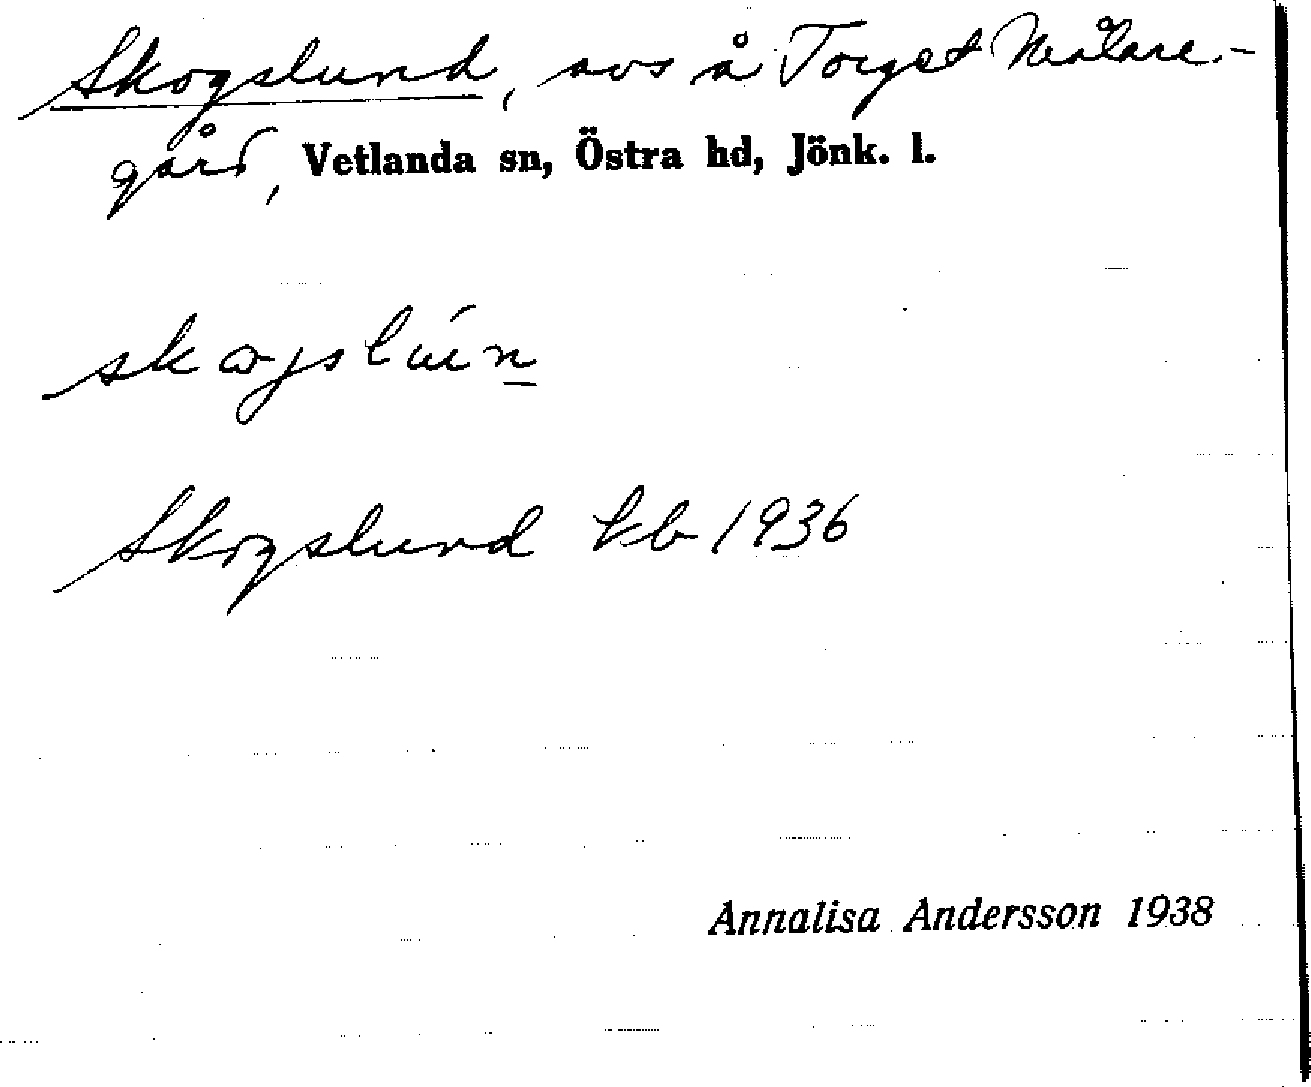 Skogslund, avs å Torget Målare-
gård, Vetlanda sn, Östra hd, Jönk. l.
Skogslund kb 1936
Annalisa Andersson 1938